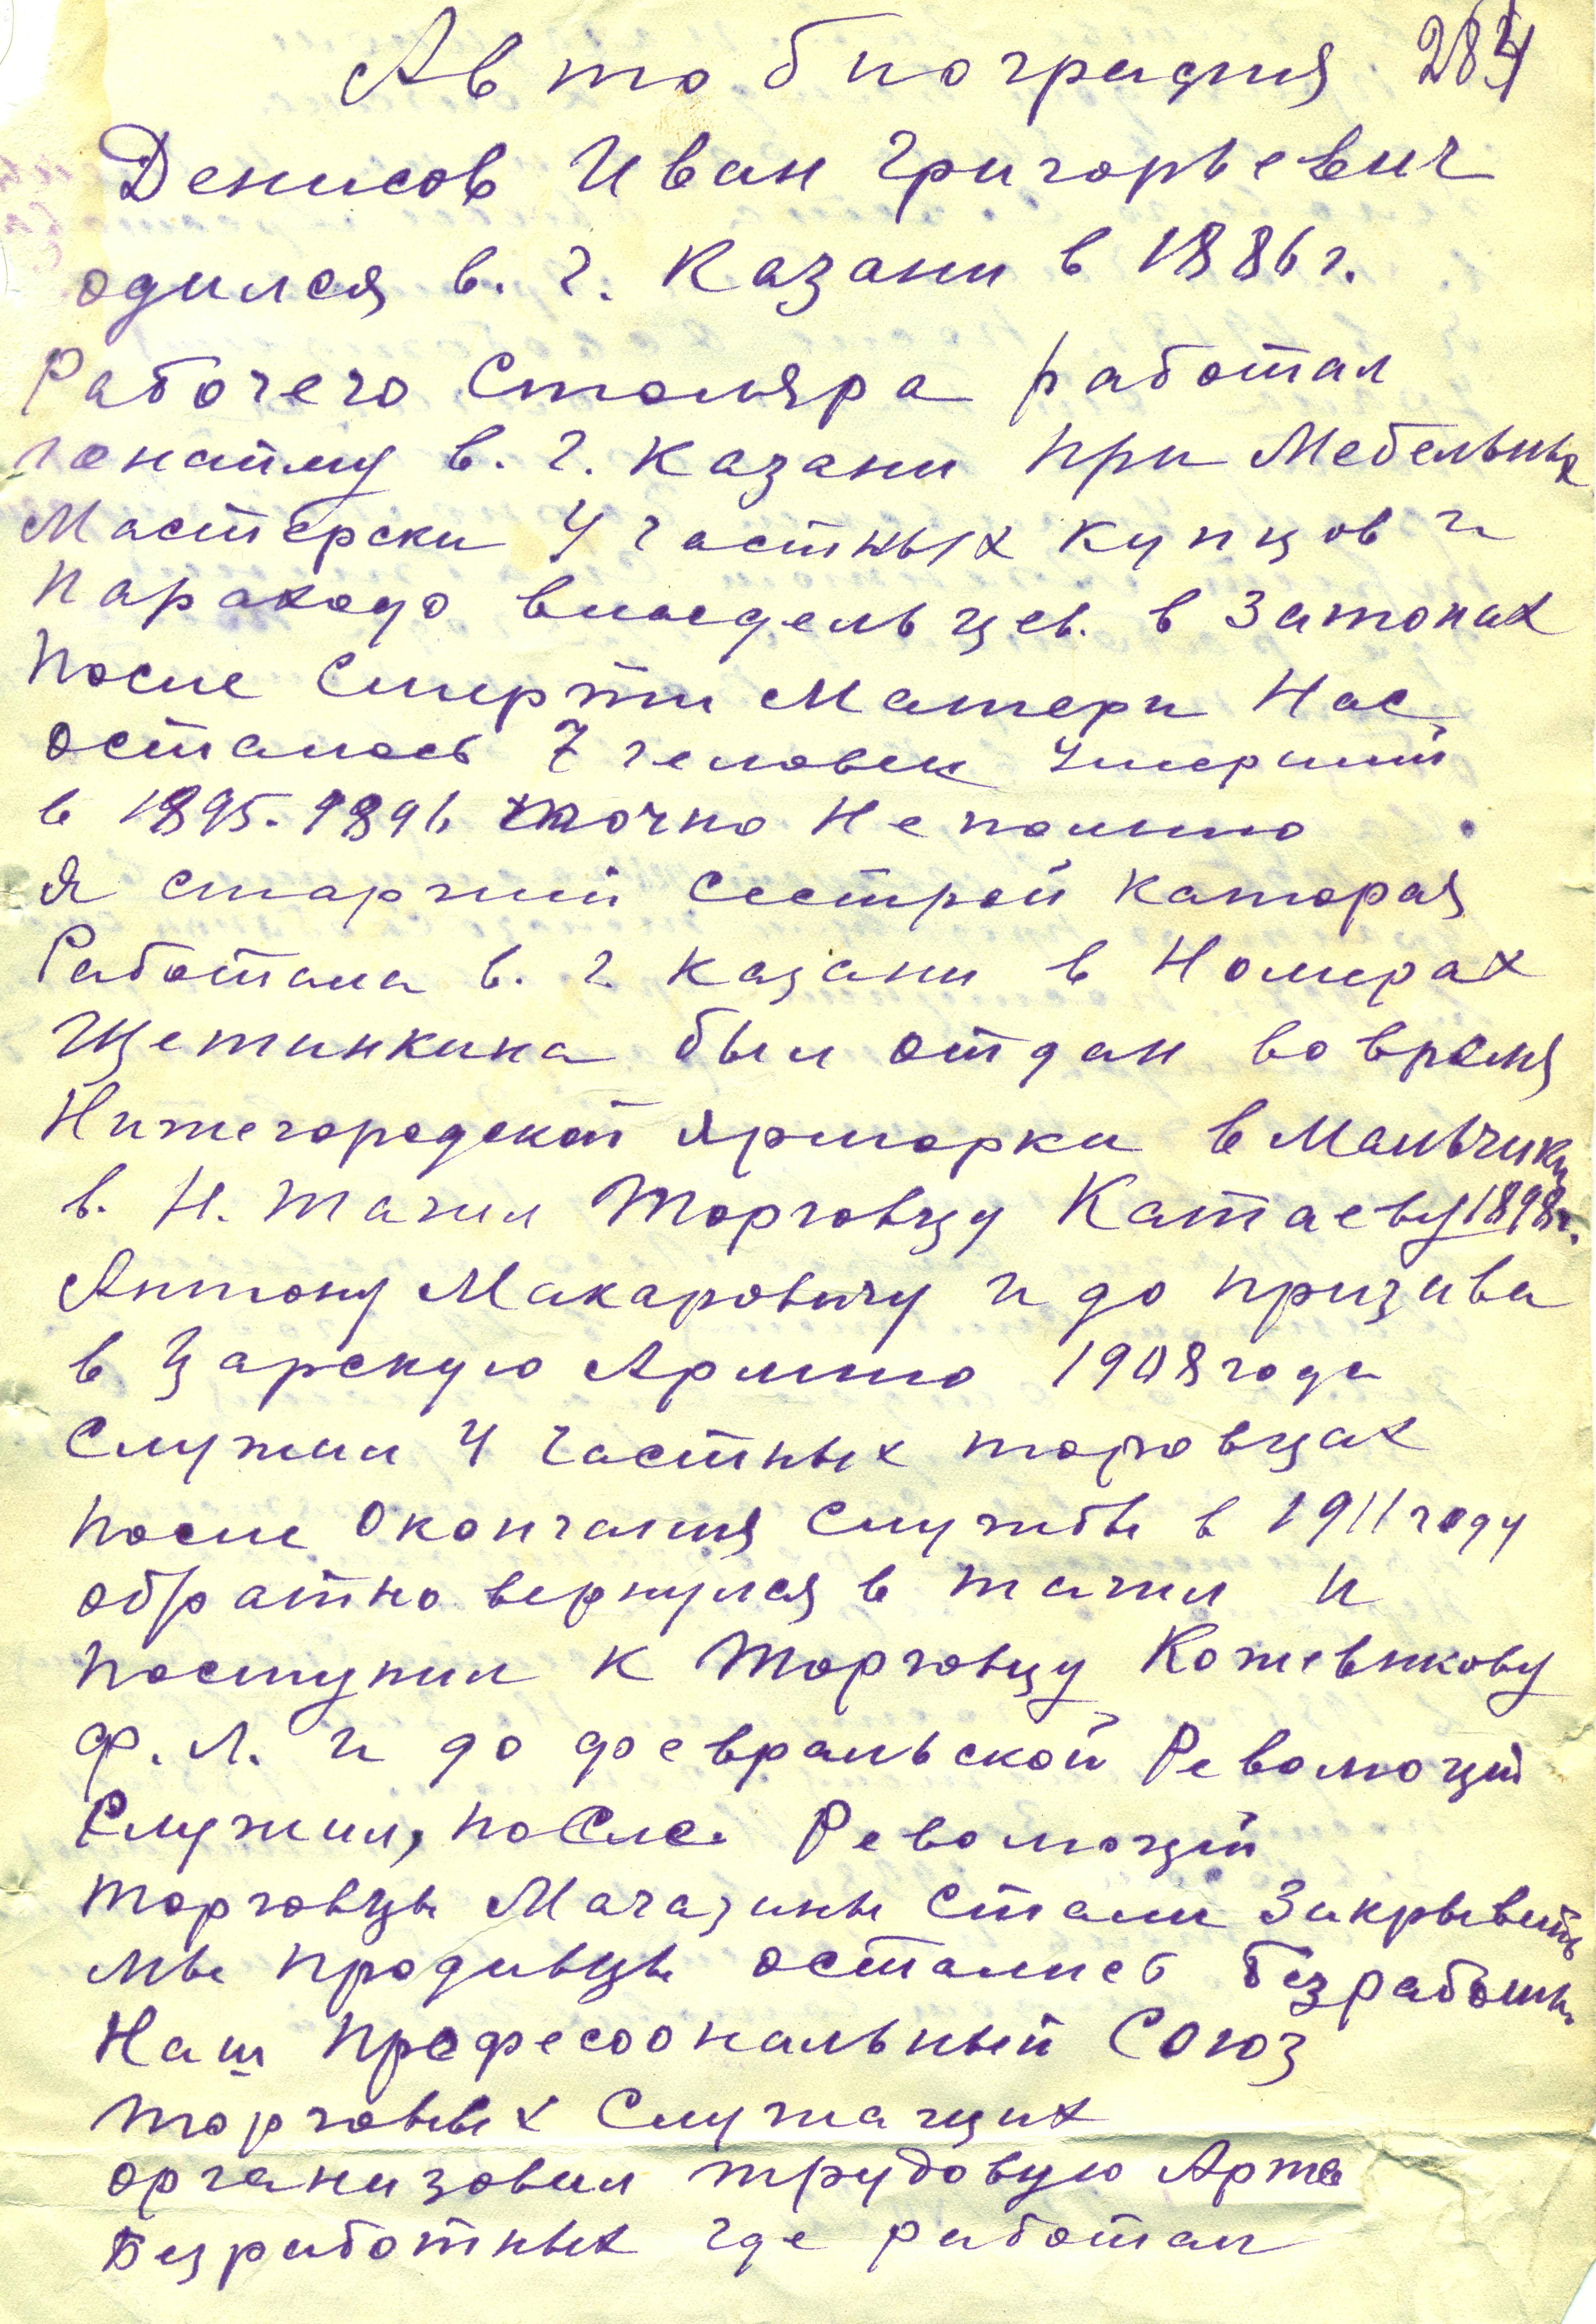 Автобиография 284
Денисов Иван Григорьевич
одился в. г. Казани в 1886 г.
Рабочего Столяра работал
по найму в. г. Казани при Мебельных
Мастерски У частных купцов и
Параходо владельцев. в Затонах
После Смерти Матери Нас
осталось 7 человек Умершей
в 1895-1896 точно Непомню
Я старшей Сестрой каторая
Работала в. г Казани в Номерах
Щетинкина был отдан во время
Нижегородской Ярморки в Мальчики
в. Н. Тагил Торговцу Катаеву 1898 г.
Антону Макаровичу и до призыва
в Царскую Армию 1908 года
Служил У частных торговцах
после Окончания Службы в 1911 году
обратно вернулся в тагил и
поступил к Торговцу Кожевникову
Ф. Л. и до февральской Революций
Служил, после Революций
торговцы Магазины Стали Закрывать
мы продавцы остались безработны
Наш Професоональный Союз
торговых Служащих
организовал трудовую Арте
Безработных где работал